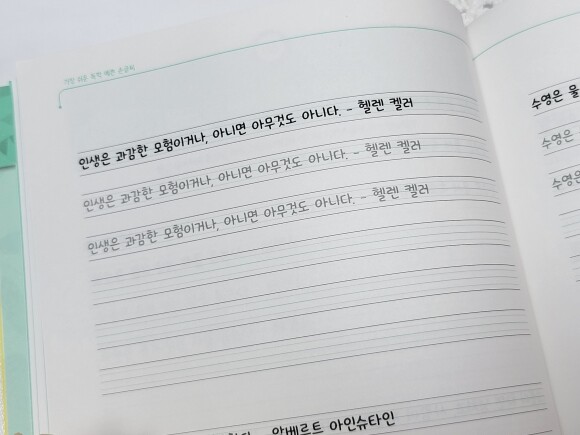 가장 쉬운 독학 예쁜 손글씨
인생은 과감한 모험이거나, 아니면 아무것도 아니다. - 헬렌 켈러
인생은 과감한 모험이거나, 아니면 아무것도 아니다. - 헬렌 켈러
인생은 과감한 모험이거나, 아니면 아무것도 아니다. - 헬렌 켈러
알베르트 아인슈타인
수영은 물
수영은
수영은